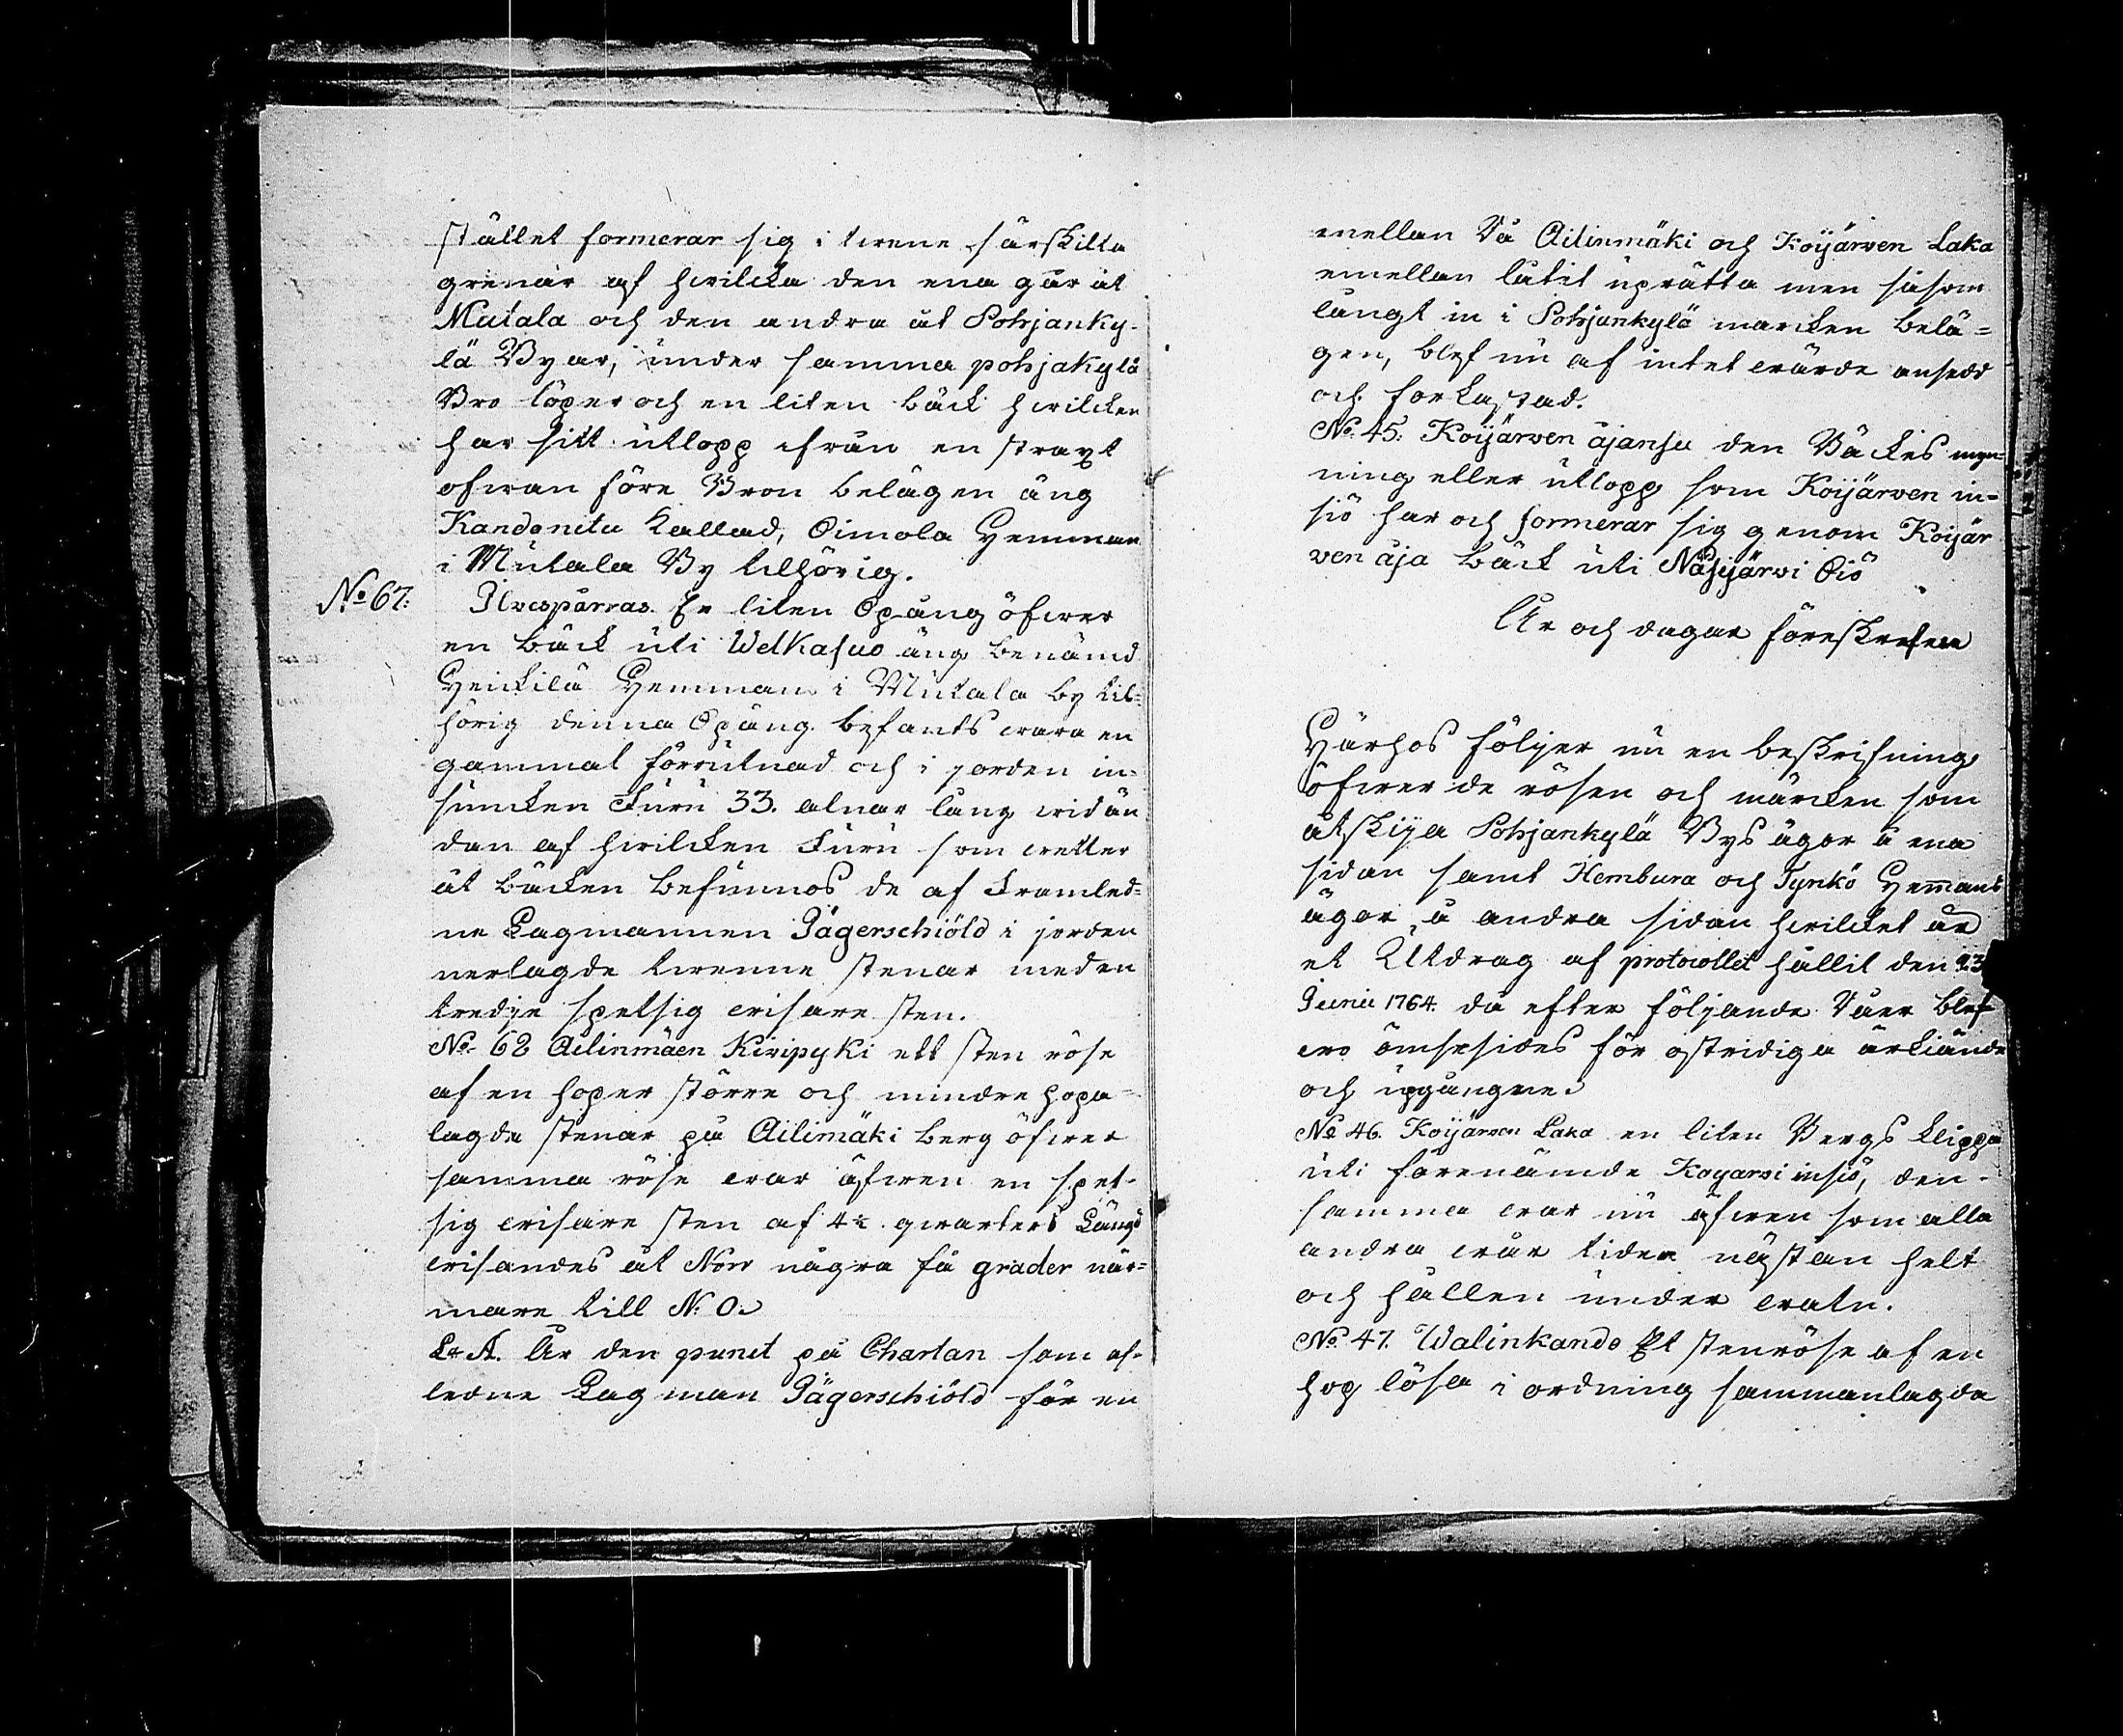 stället formerar sig i twene särskilta
grenar af hwilcka den ena går åt
Mutala och den andra åt Pohjanky-
lä Byar, under samma pohjakylä
Bro löper och en liten bäck hwilcken
har sitt utlopp ifrån en straxt
ofwan före Bron belägen äng
Kandonitu kallad, Oimola Hemman
i Mutala By tilhörig.
No 67: Ilvesparras. En liten Spång öfwer
en bäck uti Welkasuo äng benämd
Heickilä Hemman i Mutala by til-
hörig denna Spång befants wara en
gammal förrutnad och i jorden in-
suncken Furu 33. alnar lång wid än
dan af hwilcken Furu som wetter
åt bäcken befunnos de af Framled-
ne Lagmannen Jägerschiöld i jorden
nerlagde twenne stenar med en
tredje spetsig wisare sten.
No 62 Ailinmäen Kivipyki ett sten röse
af en hoper större och mindre hopa-
lagde stenar på Ailimäki berg öfwer
samma röse war äfwen en spet-
sig wisare sten af 4½ qwarters Längd
wisandes åt Norr några få grader när-
mare till N: O.
Lr A. Är den punct på Chartan som af-
ledne Lagman Jägerschiöld för en
mellan Rå Ailinmäki och Koijärven Laka
emellan låtit uprätta men såsom
långt in i Pohjankylä marcken belä-
gen, blef nu af intet wärde ansedd
och förkastad.
No 45: Koijärven äjansu den Bäckes myn-
ning eller utlopp som Koijärven in-
siö har och formerar sig genom Koijär
ven äja bäck uti Näsijärvi Siö
År och dagar föreskrefne
Härhos följer nu en beskrifning
öfwer de rösen och märcken som
åtskija Pohjankylä Bys ägor å ena
sidan samt Hembura och Tynkö Hemans
ägor, å andra sidan hwilcket är
et Utdrag af protocollet hållit den 23
Junii 1764. då efter följande Råer blef
wo ömsesides för ostridiga ärkiände
och upgångne.
No 46. Koijärven Laka en liten Bergs klippa
uti förenämde Koyarvi insiö, den-
samma war nu äfwen som alla
andra wår tider nästan helt
och hållen under watn.
No 47. Walinkando Et stenröse af en
hop lösa i ordning sammanlagde